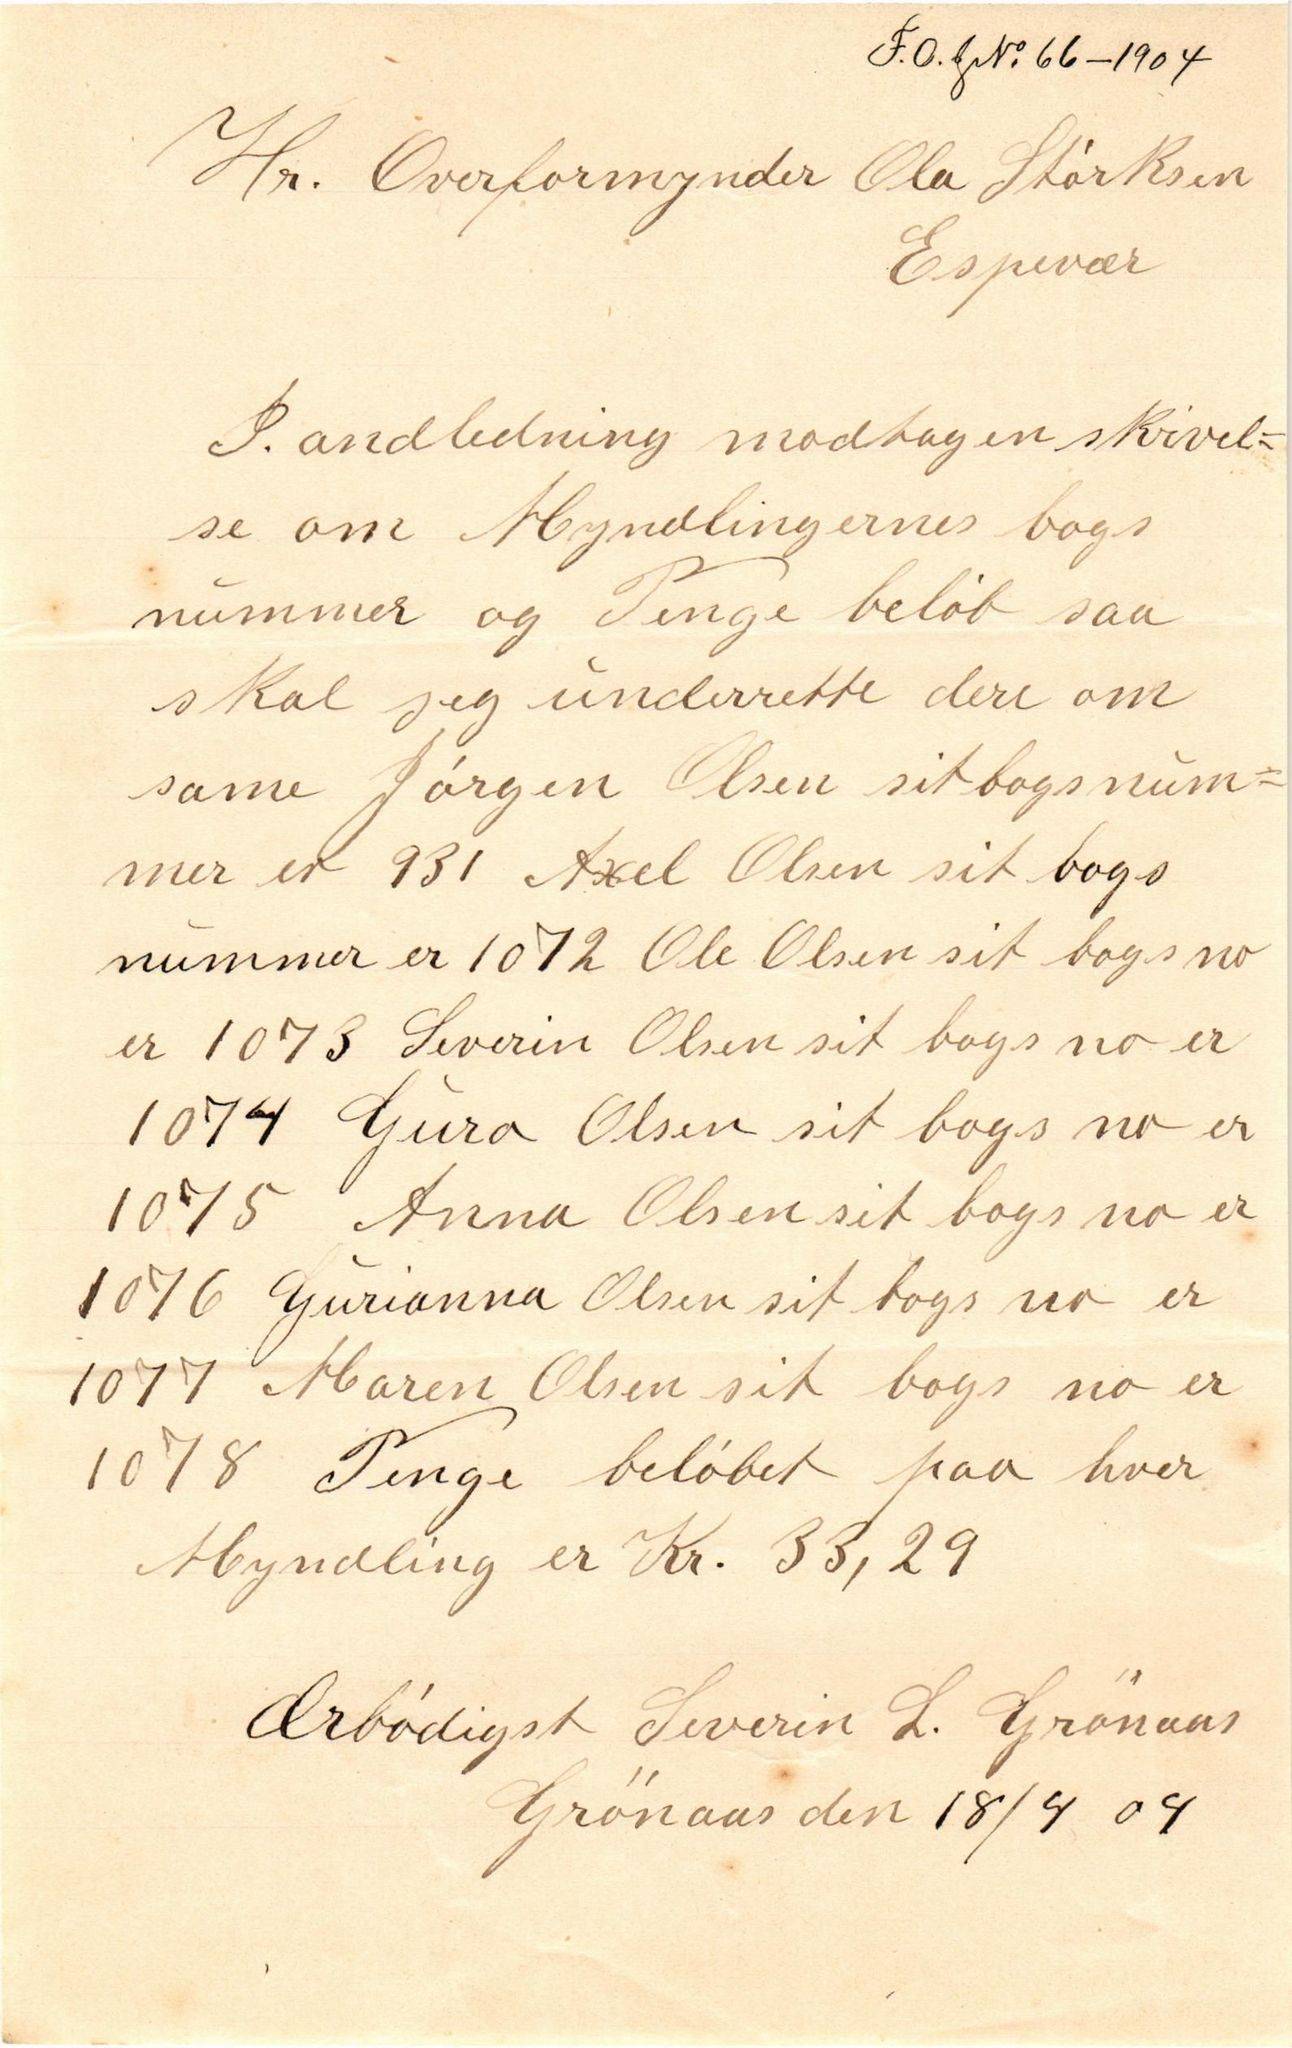 F.O.J№ 66–1904
Hr. Overformynder Ola Störksen
Espevær
I. andledning modtagen skrivel=
se om Myndlingernes bogs
nummer og Penge belöb saa
skal jeg underrette dere om
same Jörgen Olsen sit bogsnum=
mer er 931 Axel Olsen sit bogs
nummer er 1072 Ole Olsen sit bogs no
er 1073 Severin Olsen sit bogs no er
1074 Guro Olsen sit bogs no er
1075 Anna Olsen sit bogs no er
1076 Gurianna Olsen sit bogs no er
1077 Maren Olsen sit bogs no er
1078 Penge belöbet paa hver
Myndling er Kr. 33,29
Ærbödigst Severin L. Grönaas
Grönaas den 18/4 04